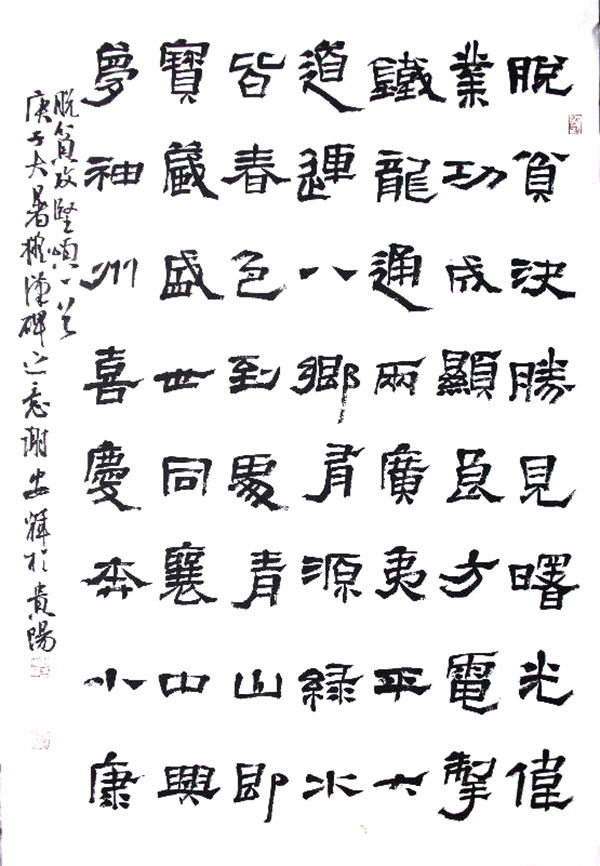 脫貧決勝見曙光偉
業功成顯良方電掣
鐵龍通兩廣夷平大
道運八鄉有源綠水
皆春色到處青山即
寶藏盛世同襄中興
夢神州喜慶奔小康
脫貧攻堅頌一首
庚子大暑擬漢碑之意謝安輝於貴陽